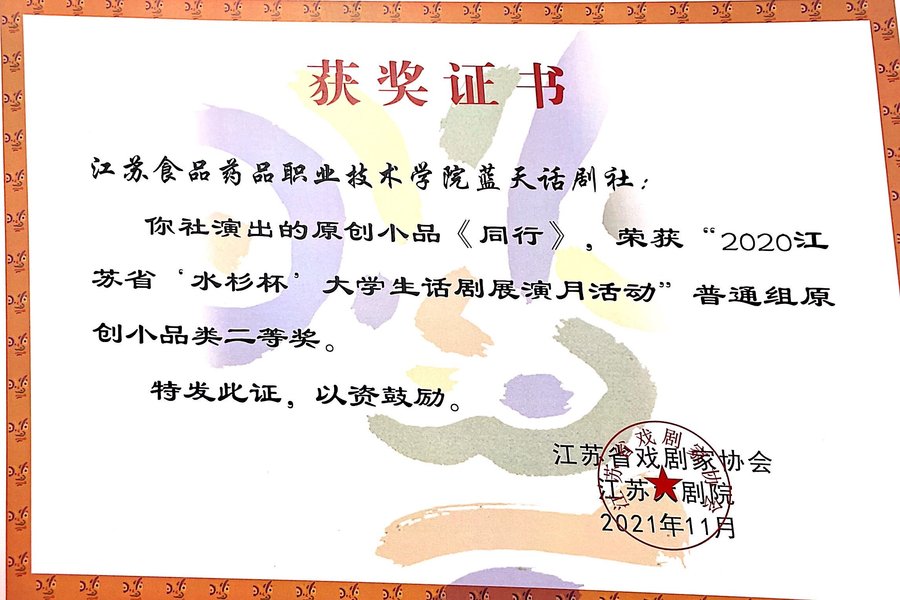 获奖证书
江苏食品药品职业技术学院蓝天话剧社：
你社演出的原创小品《同行》，荣获“2020江
苏省‘水杉杯’大学生话剧展演月活动”普通组原
创小品类二等奖。
特发此证，以资鼓励。
江苏省戏剧家协会
江苏大剧院
2021年11月
江苏省戏剧家协会